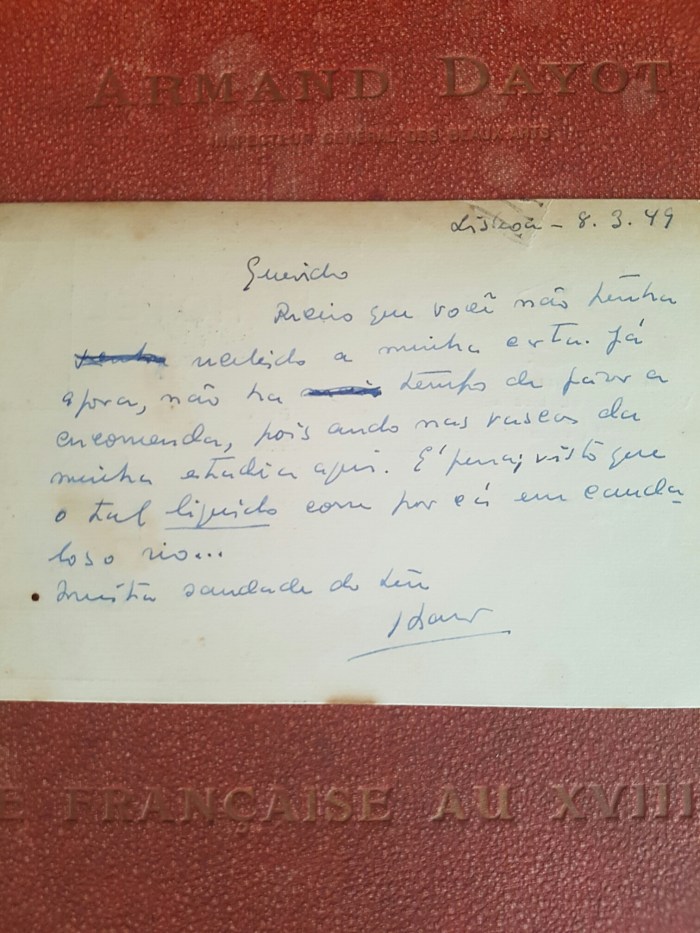 ARMAND DAYOT
INSPECTEUR GÉNÉRAL DES BEAUX-ARTS
Lisboa - 8.3.49
Querido
Receio que você não tenha
recebido a minha carta. Já
agora, não ha tempo de fazer a
encomenda, pois ando nas vascas da
minha estadia aqui. E' pena, visto que
o tal liquido corre por cá em cauda-
loso rio...
Muita saudade do teu
E FRANÇAISE AU XVIII